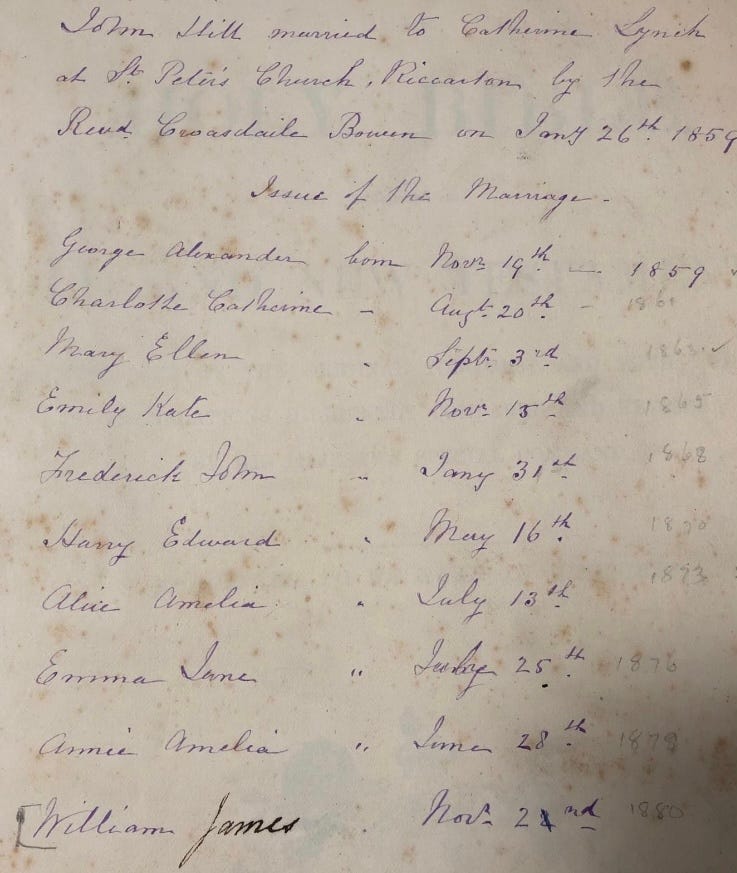 John Hill married to Catherine Lynch
at St Peter's Church, Riccarton by the
Revd Croasdaile Bowen on Jany 26th 1859
Issue of the Marriage -
George Alexander born Novr 19th — 1859 ✓
Charlotte Catherine - Augt 20th - 1861
Mary Ellen " Septr 3rd 1863 ✓
Emily Kate " Novr 15th 1865
Frederick John " Jany 31st 1868
Harry Edward " May 16th 1870
Alice Amelia " July 13th 1873
Emma Jane " 25th 1876
Annie Amelia " June 28th 1879
William James " Novr nd 1880